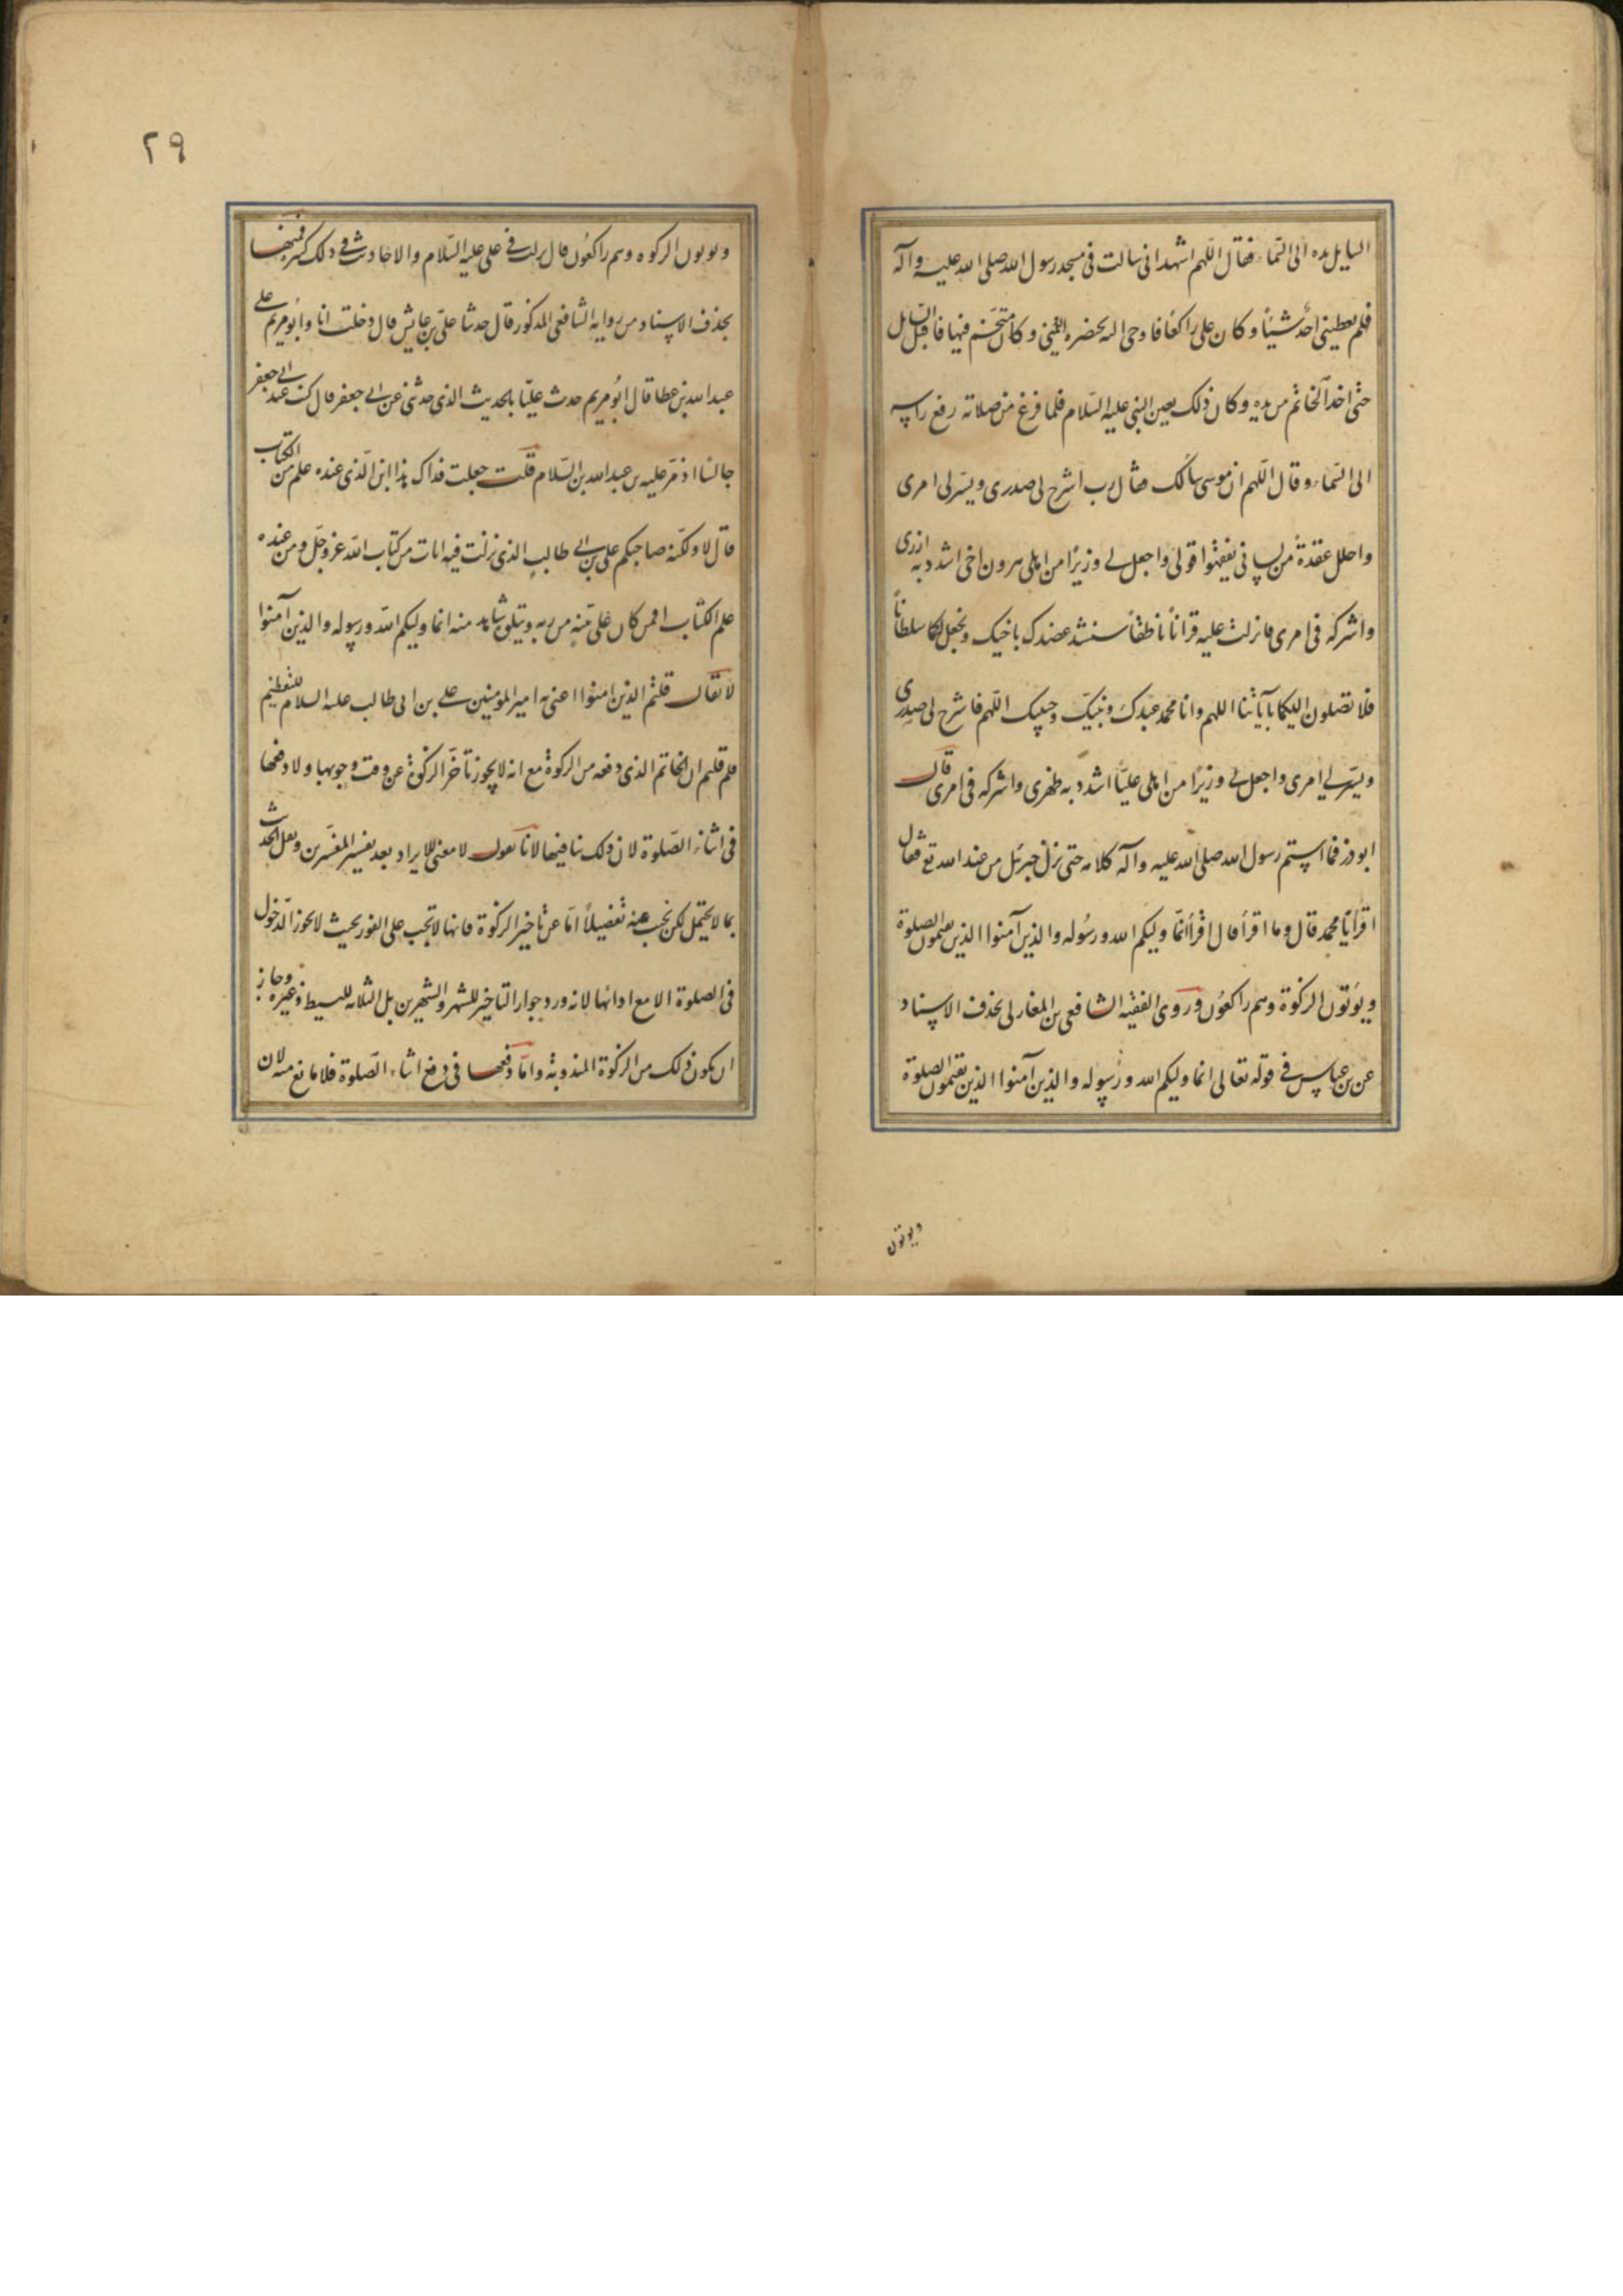 السايل يده الى السماء فقال اللهم اشهد انى سالت فى مسجد رسول الله صلى الله عليه واله
فلم يعطينى احد شيئا وكان على راكعا فاوحى اليه بخنصره اليمنى وكان متختم فيها فاقبل السايل
حتى اخذ الخاتم من يده وكان ذلك بعين النبى عليه السلام فلما فرغ من صلاته رفع راسه
الى السماء وقال اللهم ان موسى سالك فقال رب اشرح لى صدرى ويسر لى امرى
واحلل عقدة من لسانى يفقهوا قولى واجعل لى وزيرا من اهلى هرون اخى اشدد به ازرى
واشركه فى امرى فانزلت عليه قرانا ناطقا سنشد عضدك باخيك ونجعل لكما سلطانا
فلا يصلون اليكما بآياتنا اللهم وانا محمد عبدك ونبيك وحبيبك اللهم فاشرح لى صدرى
ويسر لى امرى واجعل لى وزيرا من اهلى عليا اشدد به ظهرى واشركه فى امرى قال
ابوذر فما استتم رسول الله صلى الله عليه وآله كلامه حتى نزل جبرئل من عند الله تع فقال
اقرأ يا محمد قال وما اقرأ قال اقرأ انما وليكم الله ورسوله والذين آمنوا الذين يقيمون الصلوة
ويؤتون الزكوة وهم راكعون وروى الفقيه الشافعى بن المغازلى بحذف الاسناد
عن بن عباس فى قوله تعالى انما وليكم الله ورسوله والذين آمنوا الذين يقيمون الصلوة
ويوتون
٢٩
ويوتون الزكوه وهم راكعون قال نزلت فى على عليه السلام والاحاديث فى ذلك كثيرة فمنها
بحذف الاسناد من روايه الشافعى المذكور قال حدثنا على بن عايش قال دخلت انا وابو مريم على
عبد الله بن عطا قال ابو مريم حدث عليا بالحديث الذى حدثنى عن ابى جعفر قال كنت عند ابى جعفر
جالسا اذ مر عليه بن عبد الله بن السلام قلت جعلت فداك هذا ابن الذى عنده علم من الكتاب
قال لا ولكنه صاحبكم على بن ابى طالب الذى نزلت فيه ايات من كتاب الله عز وجل ومن عنده
علم الكتاب افمن كان على بينه من ربه ويتلوه شاهد منه انما وليكم الله ورسوله والذين آمنوا
لا يقال قلتم الذين امنوا اعنى به امير المؤمنين على بن ابى طالب عليه السلام للتعظيم
فلم قلتم ان الخاتم الذى دفعه من الزكوة مع انه لا يجوز تأخر الزكوة عن وقت وجوبها ولا دفعها
فى اثناء الصلوة لان ذلك ينافيها لانا نقول لا معنى للايراد بعد تفسير المفسرين ونقل الحديث
بما لا يحتمل لكن نجيب عنه تفضيلا اما عن تاخير الزكوة فانها لا تجب على الفور بحيث لا يجوز الدخول
فى الصلوة الا مع ادائها لانه ورد جواز التاخير للشهر والشهرين بل الثلاثه للبسيط وغيره وجاز
ان يكون ذلك من الزكوة المندوبة واما دفعها فى اثناء الصلوة فلا مانع منه لان